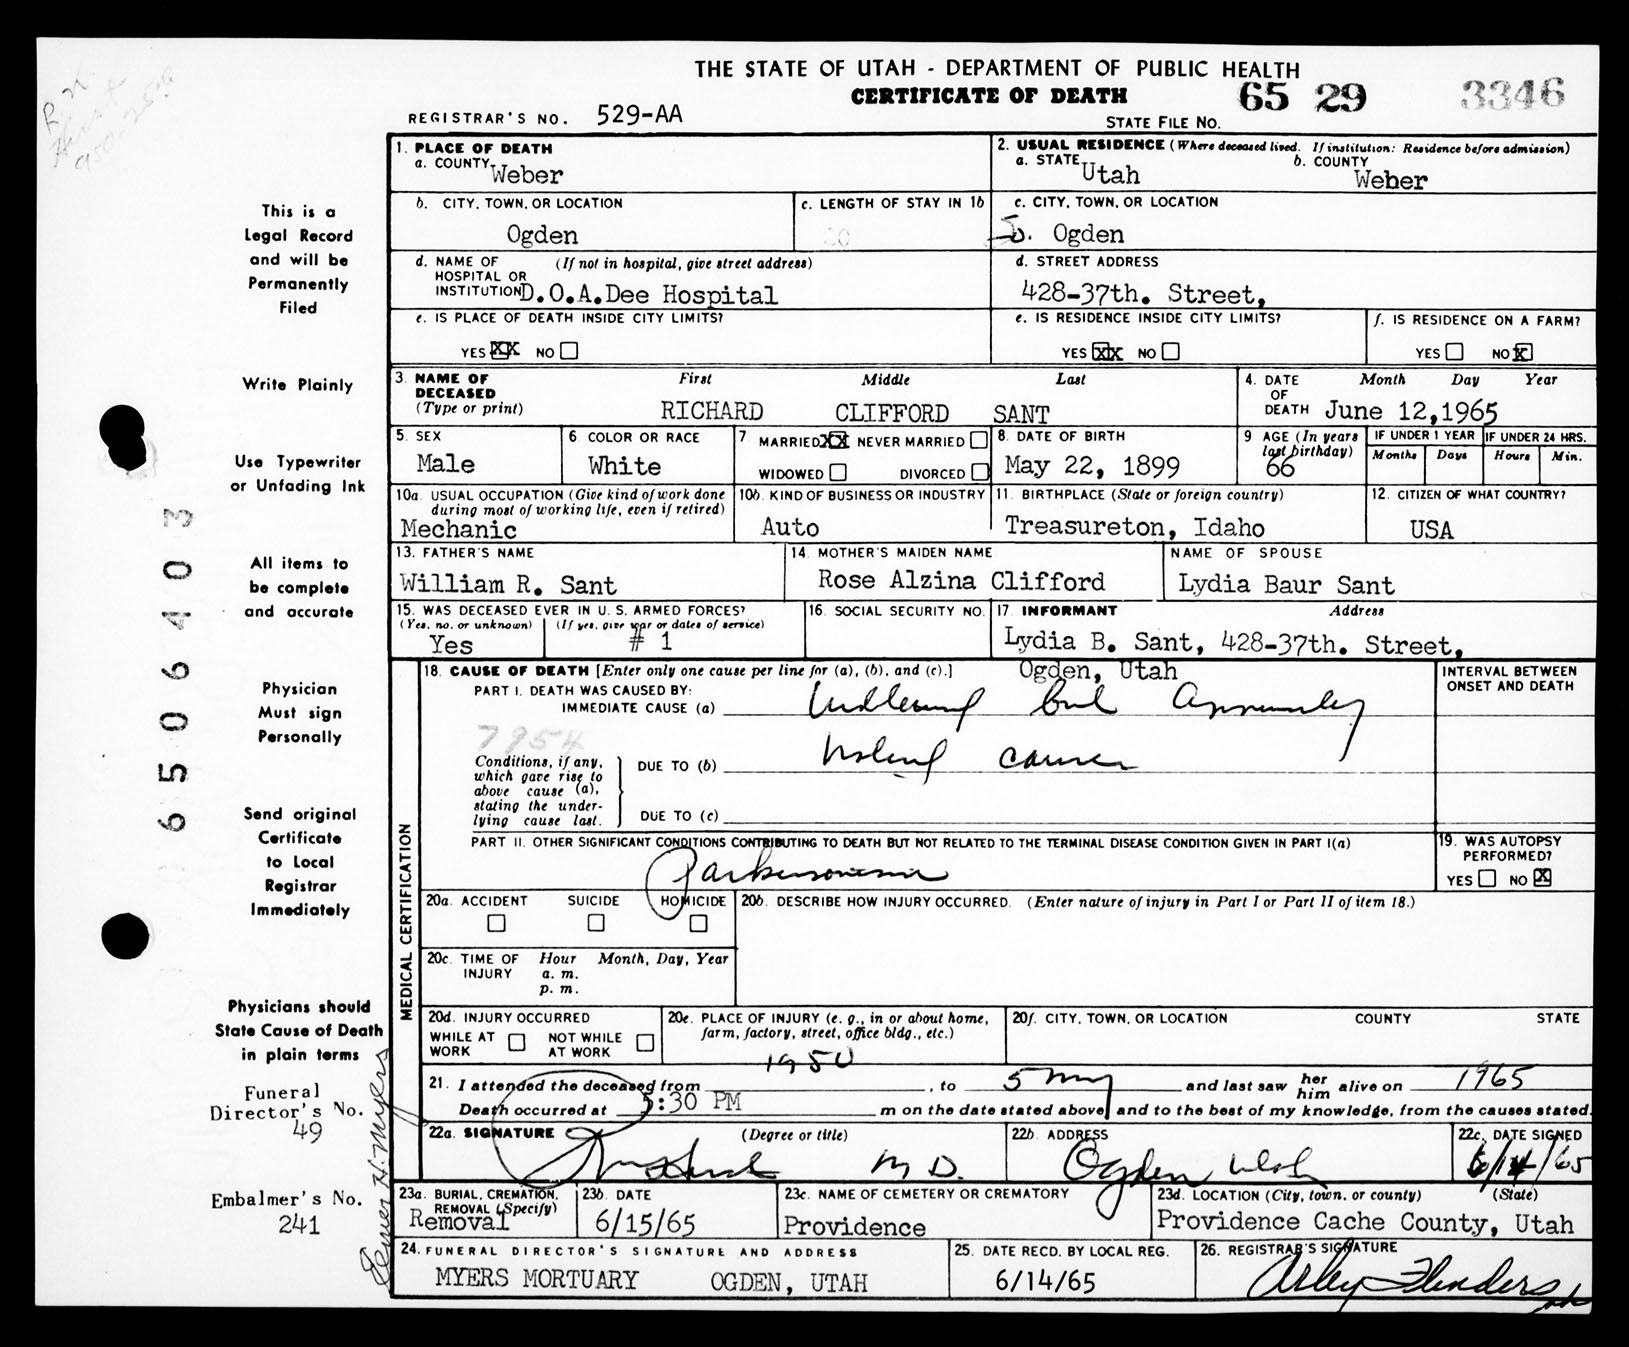 THE STATE OF UTAH - DEPARTMENT OF PUBLIC HEALTH
CERTIFICATE OF DEATH
65 29 3346
REGISTRAR'S NO. 529-AA
STATE FILE NO.
This is a
Legal Record
and will be
Permanently
Filed
Write Plainly
Use Typewriter
or Unfading Ink
All items to
be complete
and accurate
Physician
Must sign
Personally
Send original
Certificate
to Local
Registrar
Immediately
Physicians should
State Cause of Death
in plain terms
Funeral
Director's No.
49
Embalmer's No.
241
Elmer H. Myers
6506403
1. PLACE OF DEATH
a. COUNTY Weber
2. USUAL RESIDENCE (Where deceased lived. If institution: Residence before admission)
a. STATE Utah b. COUNTY Weber
b. CITY, TOWN, OR LOCATION
Ogden
c. LENGTH OF STAY IN 1b
c. CITY, TOWN, OR LOCATION
S. Ogden
d. NAME OF HOSPITAL OR INSTITUTION (If not in hospital, give street address)
D.O.A.Dee Hospital
d. STREET ADDRESS
428-37th. Street,
e. IS PLACE OF DEATH INSIDE CITY LIMITS?
YES XX NO
e. IS RESIDENCE INSIDE CITY LIMITS?
YES XX NO
f. IS RESIDENCE ON A FARM?
YES NO X
3. NAME OF DECEASED (Type or print) First Middle Last
RICHARD CLIFFORD SANT
4. DATE OF DEATH Month Day Year
June 12,1965
5. SEX
Male
6 COLOR OR RACE
White
7 MARRIED XX NEVER MARRIED
WIDOWED DIVORCED
8. DATE OF BIRTH
May 22, 1899
9 AGE (In years last birthday)
66
IF UNDER 1 YEAR IF UNDER 24 HRS.
Months Days Hours Min.
10a. USUAL OCCUPATION (Give kind of work done during most of working life, even if retired)
Mechanic
10b. KIND OF BUSINESS OR INDUSTRY
Auto
11. BIRTHPLACE (State or foreign country)
Treasureton, Idaho
12. CITIZEN OF WHAT COUNTRY?
USA
13. FATHER'S NAME
William R. Sant
14. MOTHER'S MAIDEN NAME
Rose Alzina Clifford
NAME OF SPOUSE
Lydia Baur Sant
15. WAS DECEASED EVER IN U. S. ARMED FORCES?
(Yes, no, or unknown) (If yes, give war or dates of service)
Yes # 1
16. SOCIAL SECURITY NO.
17. INFORMANT Address
Lydia B. Sant, 428-37th. Street,
Ogden, Utah
MEDICAL CERTIFICATION
18. CAUSE OF DEATH [Enter only one cause per line for (a), (b), and (c).]
INTERVAL BETWEEN ONSET AND DEATH
PART I. DEATH WAS CAUSED BY:
IMMEDIATE CAUSE (a)
7954
Conditions, if any, which gave rise to above cause (a), stating the underlying cause last.
DUE TO (b) causes
DUE TO (c)
PART II. OTHER SIGNIFICANT CONDITIONS CONTRIBUTING TO DEATH BUT NOT RELATED TO THE TERMINAL DISEASE CONDITION GIVEN IN PART I(a)
Parkinsonism
19. WAS AUTOPSY PERFORMED?
YES NO X
20a. ACCIDENT SUICIDE HOMICIDE
20b. DESCRIBE HOW INJURY OCCURRED. (Enter nature of injury in Part I or Part II of item 18.)
20c. TIME OF INJURY Hour Month, Day, Year
a. m.
p. m.
20d. INJURY OCCURRED
WHILE AT WORK NOT WHILE AT WORK
20e. PLACE OF INJURY (e. g., in or about home, farm, factory, street, office bldg., etc.)
20f. CITY, TOWN, OR LOCATION COUNTY STATE
21. I attended the deceased from 1950, to 5 May and last saw her him alive on 1965
Death occurred at 5:30 PM m on the date stated above, and to the best of my knowledge, from the causes stated.
22a. SIGNATURE (Degree or title)
M D.
22b. ADDRESS
Ogden Utah
22c. DATE SIGNED
6/14/65
23a. BURIAL, CREMATION, REMOVAL (Specify)
Removal
23b. DATE
6/15/65
23c. NAME OF CEMETERY OR CREMATORY
Providence
23d. LOCATION (City, town, or county) (State)
Providence Cache County, Utah
24. FUNERAL DIRECTOR'S SIGNATURE AND ADDRESS
MYERS MORTUARY OGDEN, UTAH
25. DATE RECD. BY LOCAL REG.
6/14/65
26. REGISTRAR'S SIGNATURE
Arley Flinders